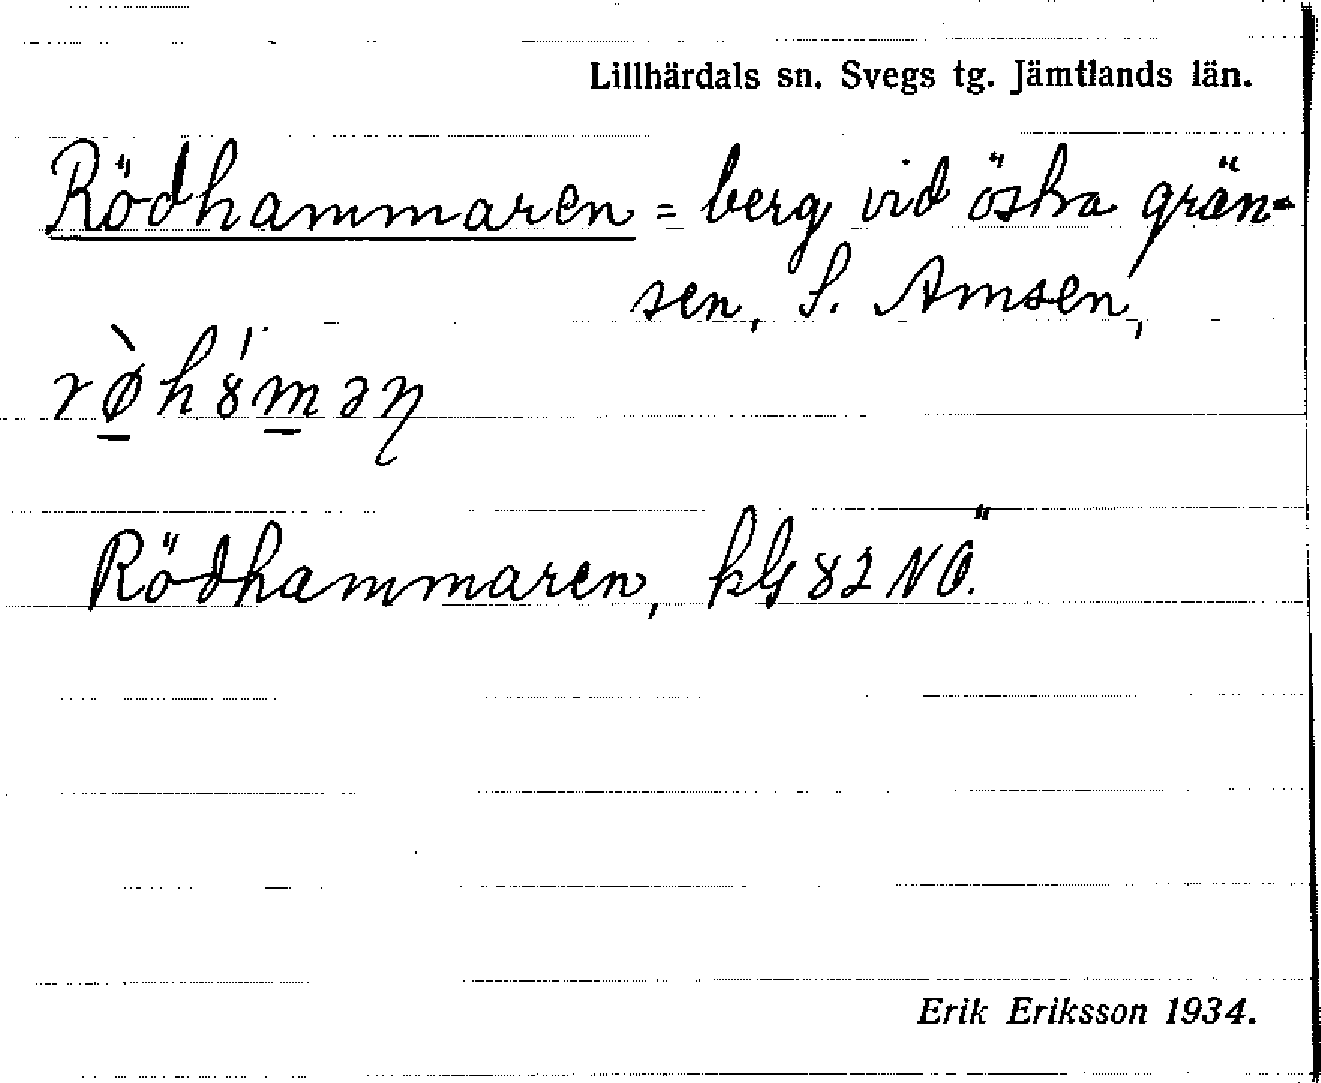 Lillhärdals sn. Svegs tg. Jämtlands län.
Rödhammaren = berg vid östra grän-
sen, S. Amsen,
Rödhammaren, kbl 82 NÖ.
Erik Eriksson 1934.